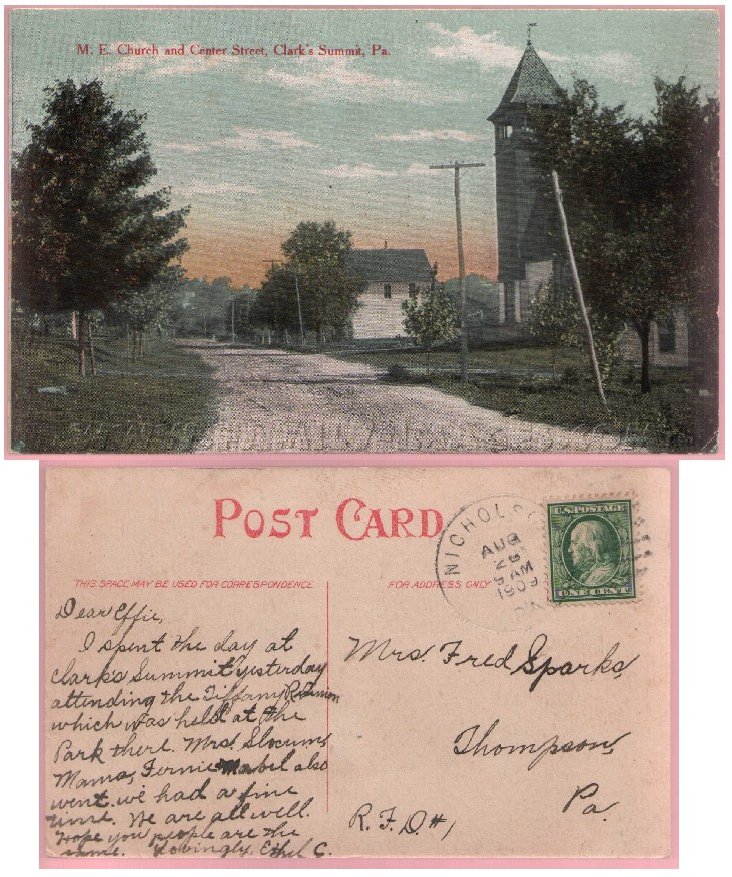 M. E. Church and Center Street, Clark's Summit, Pa.
POST CARD
THIS SPACE MAY BE USED FOR CORRESPONDENCE
FOR ADDRESS ONLY
NICHOLSO
AUG
26
AM
1909
U.S. POSTAGE
ONE CENT
Dear Effie,
I spent the day at
Clark's Summit yesterday
attending the Tiffany Reunion
which was held at the
Park there. Mrs. Slocum,
Mama, Fernie Mabel also
went. we had a fine
time. We are all well.
Hope you people are the
same. Lovingly, Ethel C.
Mrs. Fred Sparks,
Thompson,
Pa.
R.F.D #1